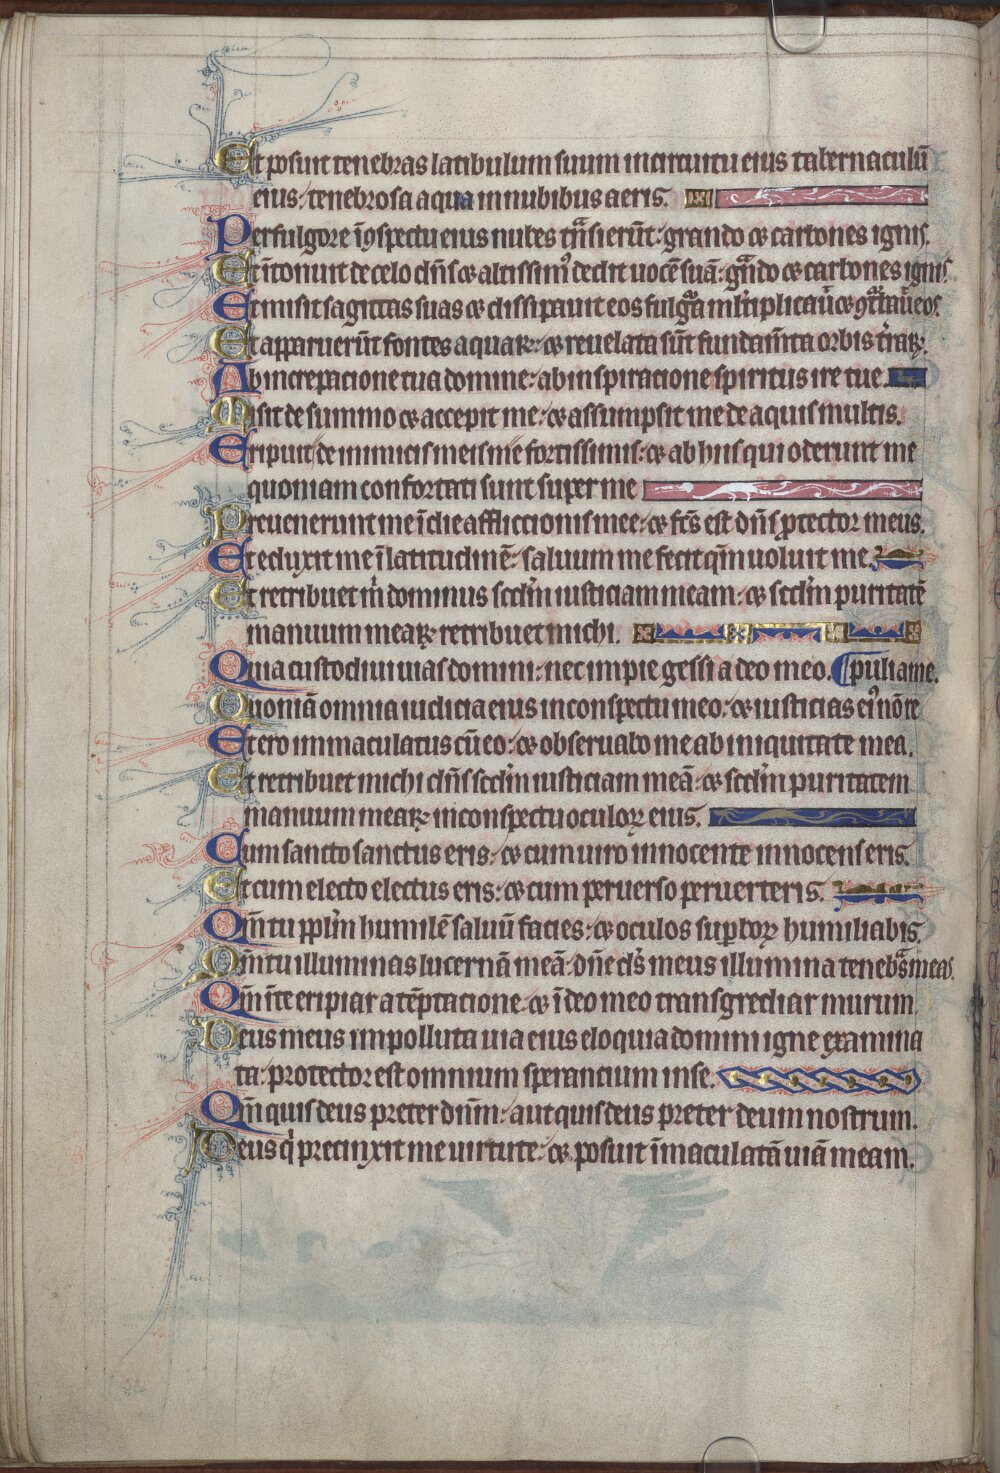 Et posuit tenebras latibulum suum in circuitu eius tabernaculū
eius: tenebrosa aqua in nubibus aeris.
Per fulgore ī ꝯspectu eius nubes trāsierūt: grando ⁊ carbones ignis.
Et ītonuit de celo dn̄s ⁊ altissimꝰ dedit uocē suā: grādo ⁊ carbones ignis.
Et misit sagittas suas ⁊ dissipauit eos fulgᵃa ml̄tiplicau̇ ⁊ ꝯtᵃbau̇ eos.
Et apparuerūt fontes aquaꝝ: ⁊ reuelata sūt fundam̄ta orbis t̄raꝝ.
Ab increpacione tua domine: ab inspiracione spiritus ire tue.
Misit de summo ⁊ accepit me: ⁊ assumpsit me de aquis multis.
Eripuit de inimicis meis me fortissimis: ⁊ ab hiis qui oderunt me
quoniam confortati sunt super me
Preuenerunt me ī die afflictionis mee: ⁊ fc̄s est dn̄s ꝓtector meus.
Et eduxit me ī latitudinē: saluum me fecit qm̄ uoluit me.
Et retribuet m̄ dominus scd̄m iusticiam meam: ⁊ scd̄m puritatē
manuum meaꝝ retribuet michi.
Quia custodiui uias domini: nec impie gessi a deo meo. ¶puli a me.
Quoniā omnia iudicia eius in conspectu meo: ⁊ iusticias eiꝰ nō re
Et ero immaculatus cū eo: ⁊ obseruabo me ab iniquitate mea.
Et retribuet michi dn̄s scd̄m iusticiam meā: ⁊ scd̄m puritatem
manuum meaꝝ in conspectu oculoꝝ eius.
Cum sancto sanctus eris: ⁊ cum uiro innocente innocens eris.
Et cum electo electus eris: ⁊ cum peruerso peruerteris.
Qm̄ tu ppl̄m humilē saluū facies: ⁊ oculos supboꝝ humiliabis.
Qm̄ tu illuminas lucernā meā: dn̄e ds̄ meus illumina tenebᵃs meas.
Qm̄ ī te eripiar a tēptacione: ⁊ ī deo meo transgrediar murum.
Deus meus impolluta uia eius eloquia domini igne examina
ta: protector est omnium sperancium in se.
Qm̄ quis deus preter dn̄m: aut quis deus preter deum nostrum.
Deus q̇ precinxit me uirtute: ⁊ posuit īmaculatā uiā meam.